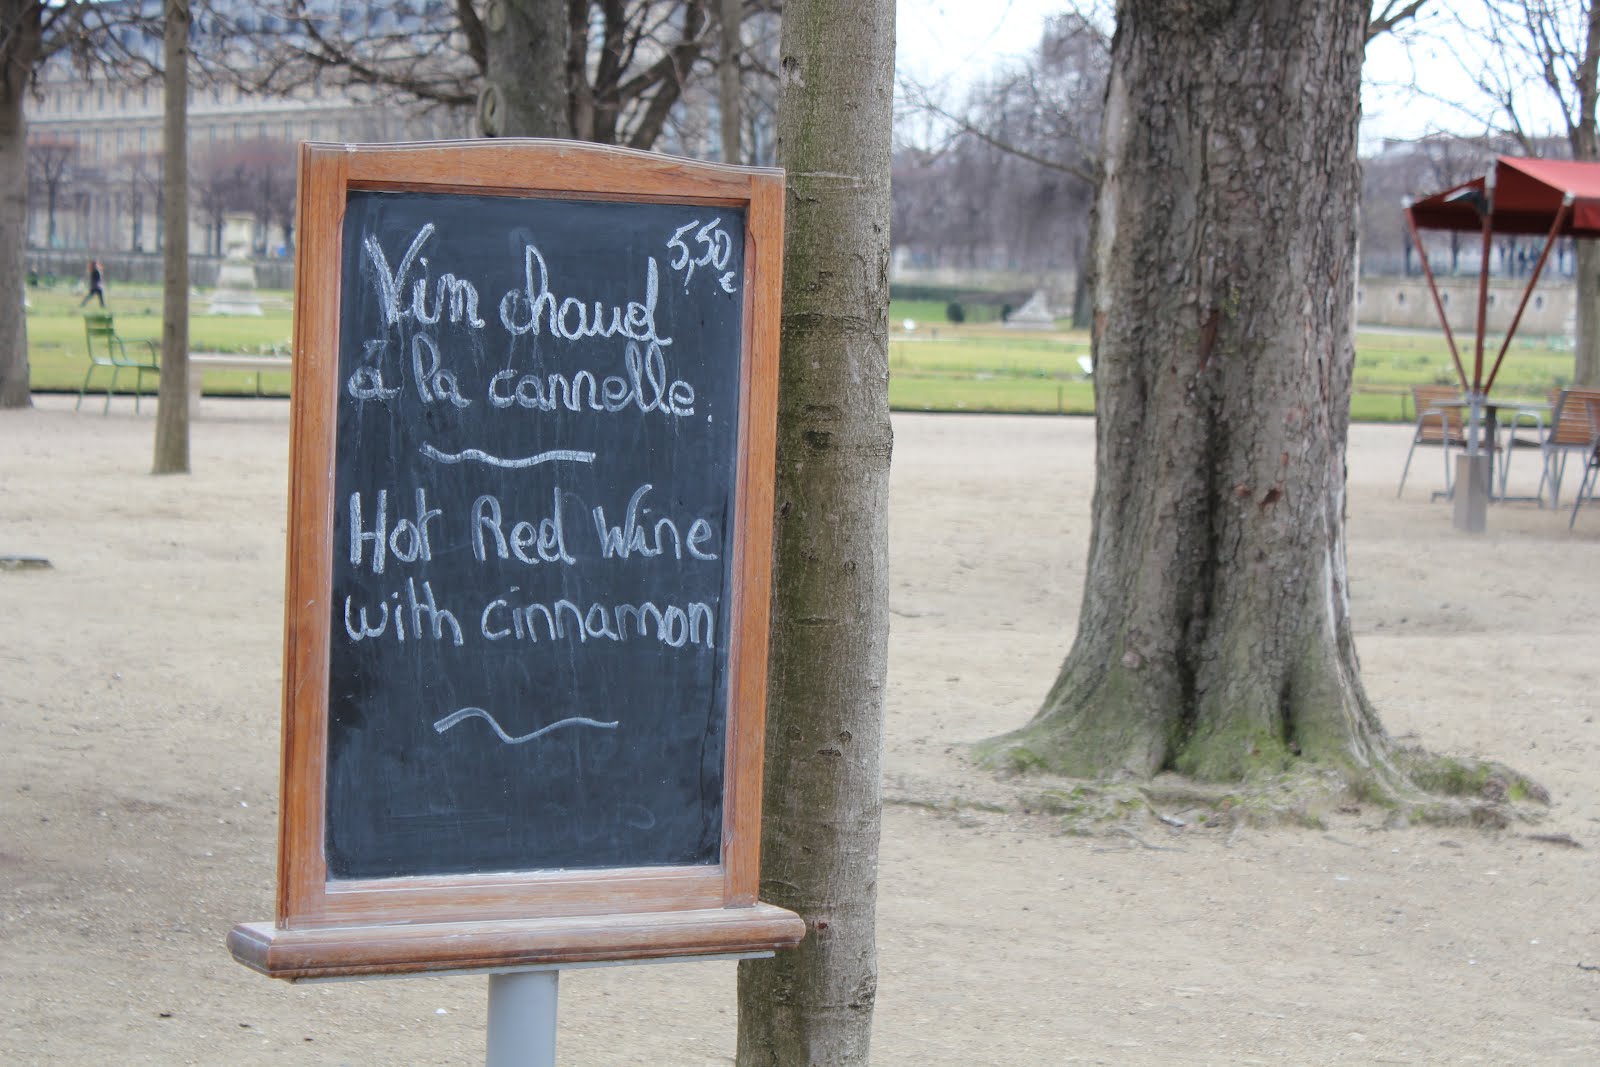 Vin chaud 5,50€
à la cannelle.
Hot Red Wine
with cinnamon